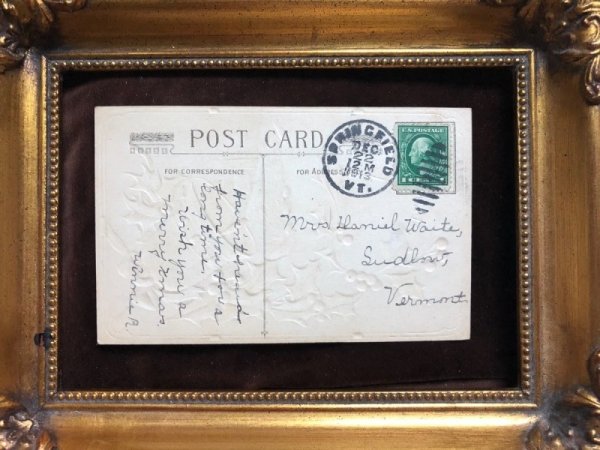 POST CARD
FOR CORRESPONDENCE
FOR ADDRESS
SPRINGFIELD
DEC
22
12 M
1913
VT.
U.S. POSTAGE
Haven't heard
from you for a
long time.
Wish you a
merry Xmas
Winnie R.
Mrs Daniel Waite,
Ludlow,
Vermont